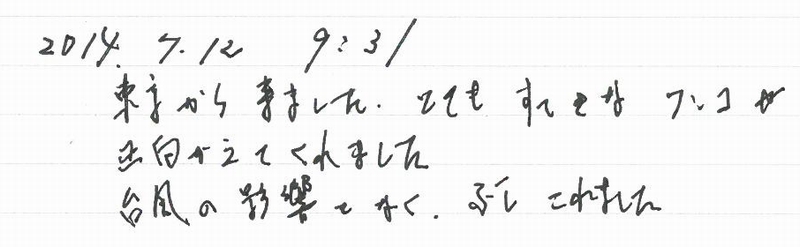 2014. 7.12 9:31
東京から来ました. とても すてきな ワンコが
出向かえてくれました
台風の影響もなく. ぶじ これました